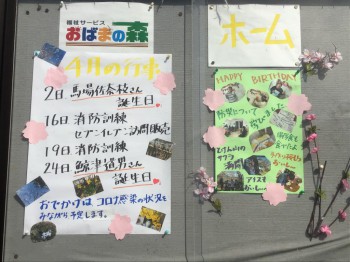 福祉サービス
おばまの森
4月の行事
2日 馬場佐奈枝さん
誕生日
16日 消防訓練
セブンイレブン訪問販売
19日 消防訓練
24日 鯨津道男さん
誕生日
おでかけは、コロナ感染の状況を
みながら予定します。
ホーム
HAPPY BIRTHDAY
防災について
学び
サクラ
満開
アイスも
おいし〜